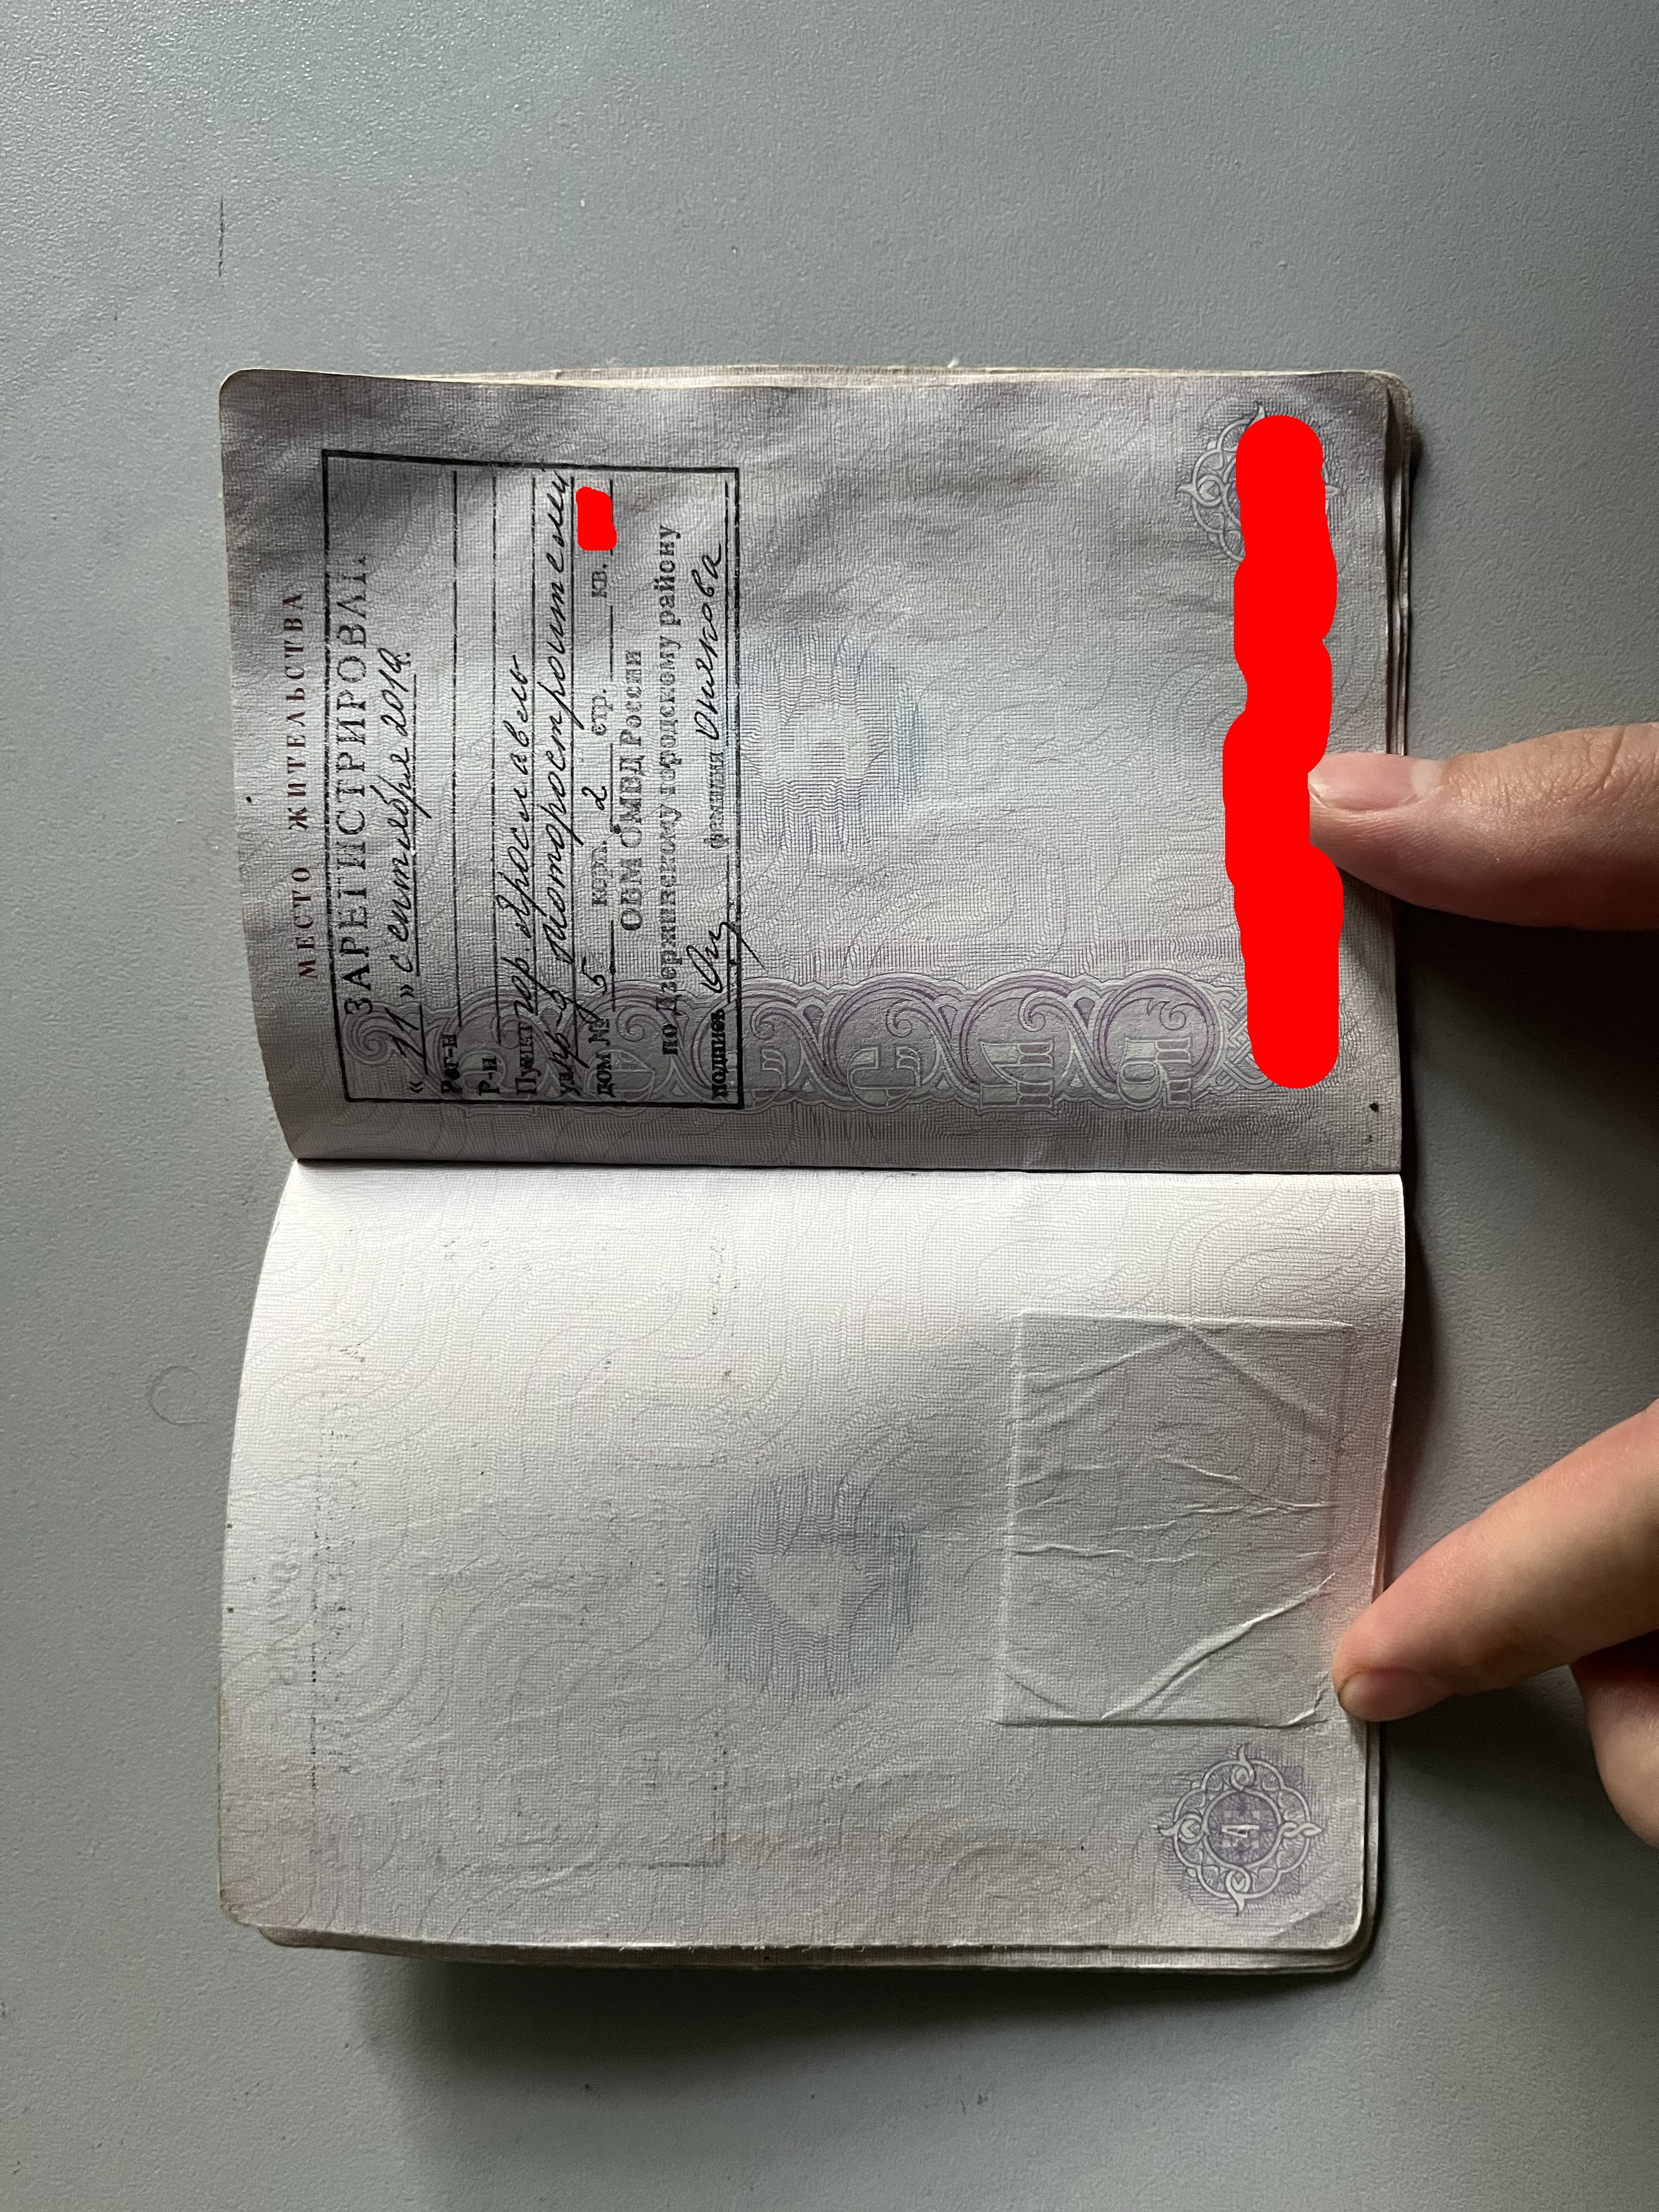 МЕСТО ЖИТЕЛЬСТВА
ЗАРЕГИСТРИРОВАН
« 11 » сентября 2019г.
Рег-н
Р-н
Пункт гор. Ярославль
ул. пр-д Моторостроителей
дом № 5 корп. 2 стр. кв.
ОВМ ОМВД России
по Дзержинскому городскому району
подпись фамилия
4